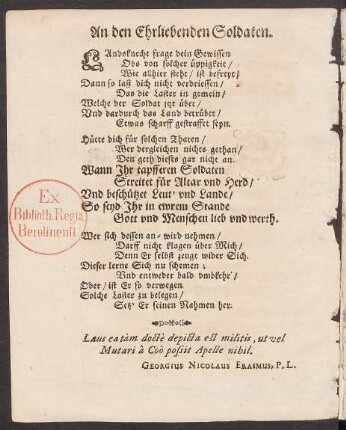 An den Ehrliebenden Soldaten.
LAndsknecht frage dein Gewissen
Obs von solcher üppigkeit/
Wie allhier steht/ ist befreyt;
Dann so laß dich nicht verdriessen/
Das die Laster in gemein/
Welche der Soldat jtzt über/
Vnd dardurch das Land betrübet/
Etwas scharff gestraffet seyn.
Hütte dich für solchen Thaten/
Wer dergleichen nichts gethan/
Den geth diests gar nicht an.
Wann Ihr tapfferen Soldaten
Streitet für Altar vnd Herd/
Vnd beschützet Leut vnd Lande/
So seyd Ihr in ewrem Stande
Gott vnd Menschen lieb vnd werth.
Ex
Biblioth. Regia
Berolinensi.
Wer sich dessen an-wird nehmen/
Darff nicht klagen über Mich/
Denn Er selbst zeuge wider Sich.
Dieser lerne Sich zu schemen;
Vnd entweder bald vmbkehr/
Oder/ ist Er so verwegen
Solche Laster zu belegen/
Setz Er seinen Nahmen her.
Laus ea tàm doctè depicta est militis, ut vel
Mutari à Coô possit Apelle nihil.
GEORGIUS NICOLAUS ERASMUS, P. L.